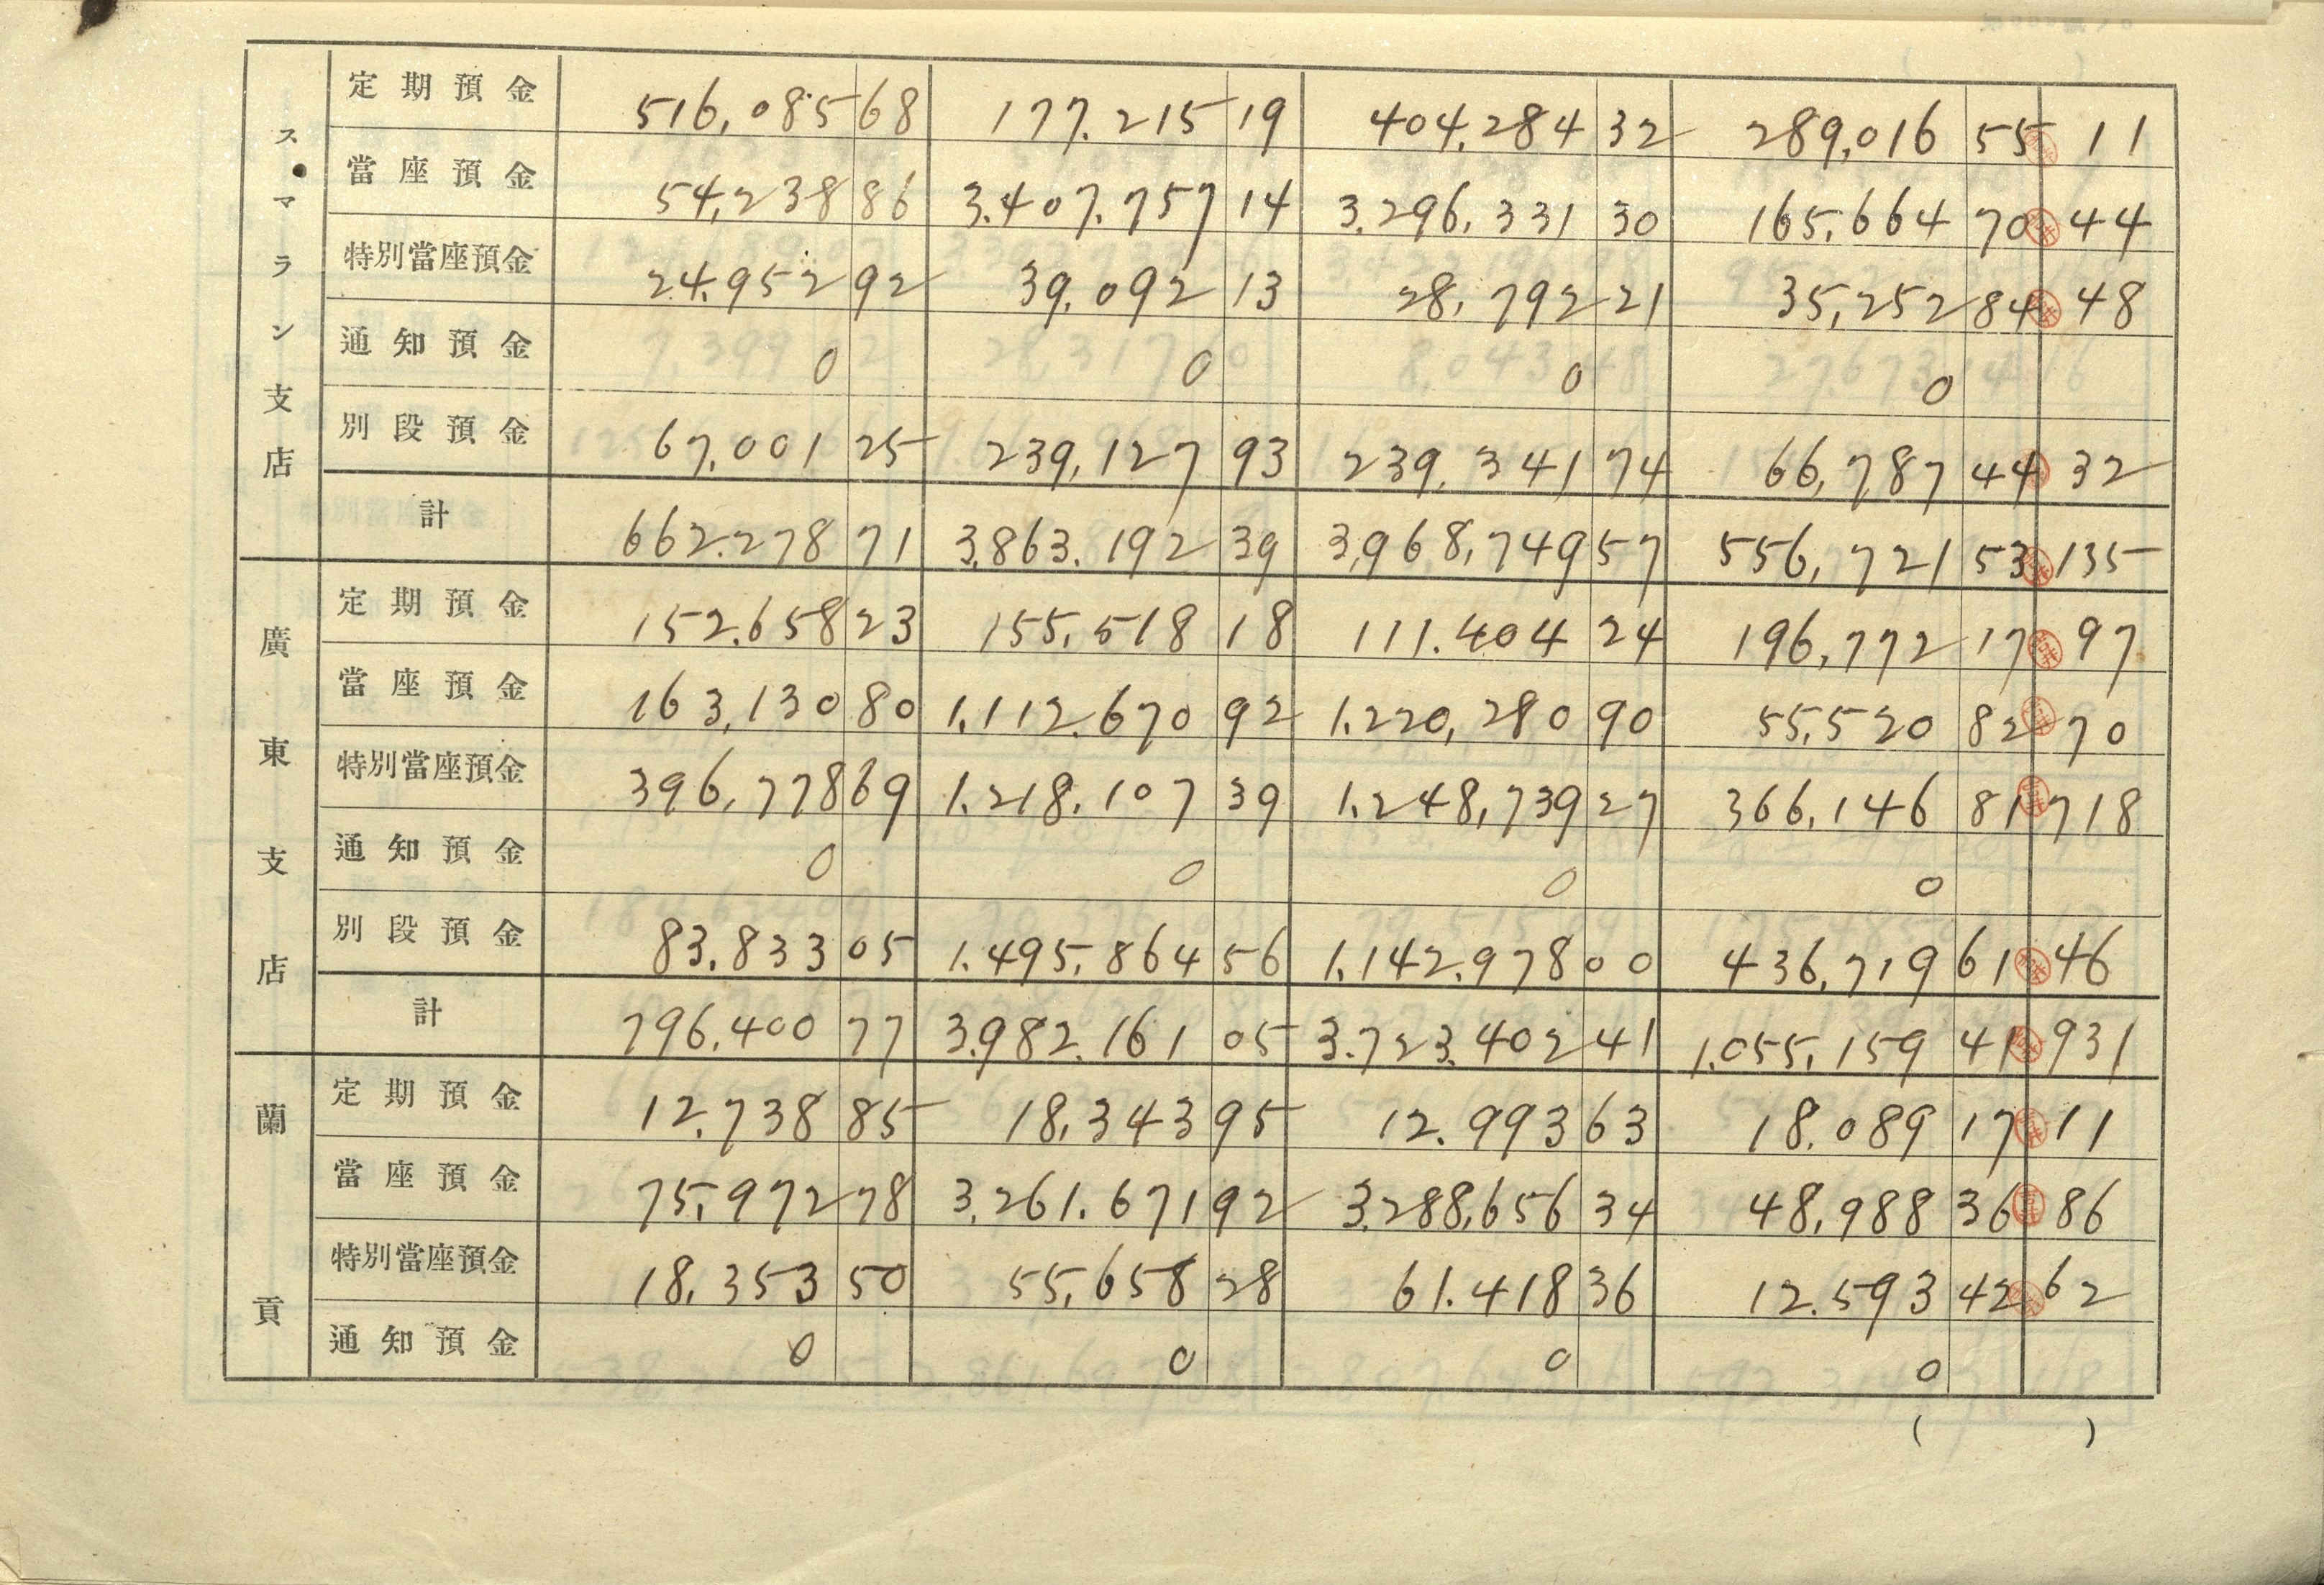 スマラン支店
定期預金 516,085 68 177.215 19 404.284 32 289,016 55 11
當座預金 54,238 86 3.407.757 14 3.296,331 30 165,664 70 44
特別當座預金 24,952 92 39,092 13 28,792 21 35,252 84 48
通知預金 0 0 0 0
別段預金 67,001 25 239,127 93 239,341 74 66,787 44 32
計 662.278 71 3,863.192 39 3,968,749 57 556,721 53 135
廣東支店
定期預金 152.658 23 155,518 18 111.404 24 196,772 17 97
當座預金 163,130 80 1.112.670 92 1.220,280 90 55,520 82 70
特別當座預金 396,778 69 1.218.107 39 1.248,739 27 366,146 81 718
通知預金 0 0 0 0
別段預金 83,833 05 1.495,864 56 1.142.978 00 436,719 61 46
計 796.400 77 3.982.161 05 3.723.402 41 1.055,159 41 931
蘭貢
定期預金 12.738 85 18,343 95 12.993 63 18.089 17 11
當座預金 75,972 78 3,261.671 92 3.288,656 34 48,988 36 86
特別當座預金 18,353 50 55,658 28 61.418 36 12.593 42 62
通知預金 0 0 0 0
( )